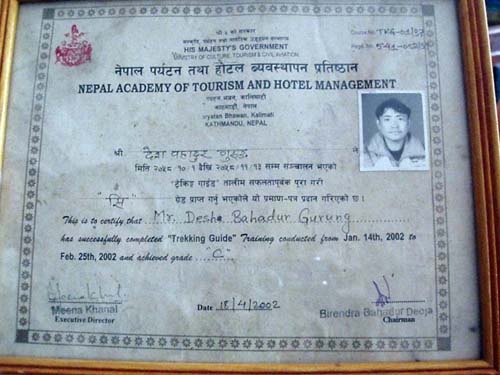 श्री ५ को सरकार
HIS MAJESTY'S GOVERNMENT
MINISTRY OF CULTURE, TOURISM & CIVIL AVIATION
Course No.
Regn. No.
नेपाल पर्यटन तथा होटल व्यवस्थापन प्रतिष्ठान
NEPAL ACADEMY OF TOURISM AND HOTEL MANAGEMENT
काठमाडौं, नेपाल
Bhawan, Kalimati
KATHMANDU, NEPAL
श्री देश बहादुर गुरुङ ले
मिति २०५८-१०-१ देखि २०५८-११-१३ सम्म सञ्चालन भएको
"ट्रेकिङ गाईड" तालीम सफलतापूर्वक पूरा गरी
"सि" ग्रेड प्राप्त गर्नु भएकोले यो प्रमाण-पत्र प्रदान गरिएको छ।
This is to certify that Mr. Desha Bahadur Gurung
has successfully completed "Trekking Guide" Training conducted from Jan. 14th, 2002 to
Feb. 25th, 2002 and achieved grade "C".
Date 18/4/2002
Meena Khanal
Executive Director
Birendra Bahadur Deoja
Chairman